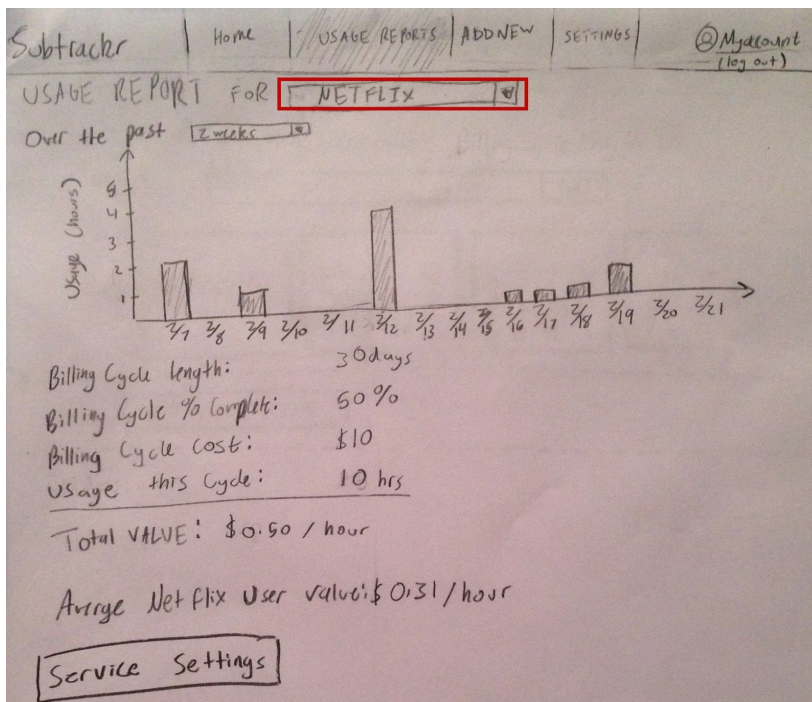 Subtrackr Home USAGE REPORTS ADD NEW SETTINGS My account
(log out)
USAGE REPORT FOR NETFLIX
Over the past 2 weeks
Usage (hours)
5
4
3
2
1
2/7 2/8 2/9 2/10 2/11 2/12 2/13 2/14 2/15 2/16 2/17 2/18 2/19 2/20 2/21
Billing Cycle length: 30 days
Billing Cycle % Complete: 50%
Billing Cycle Cost: $10
Usage this Cycle: 10 hrs
Total VALUE: $0.50 / hour
Averge Netflix User value: $0.31 / hour
Service Settings